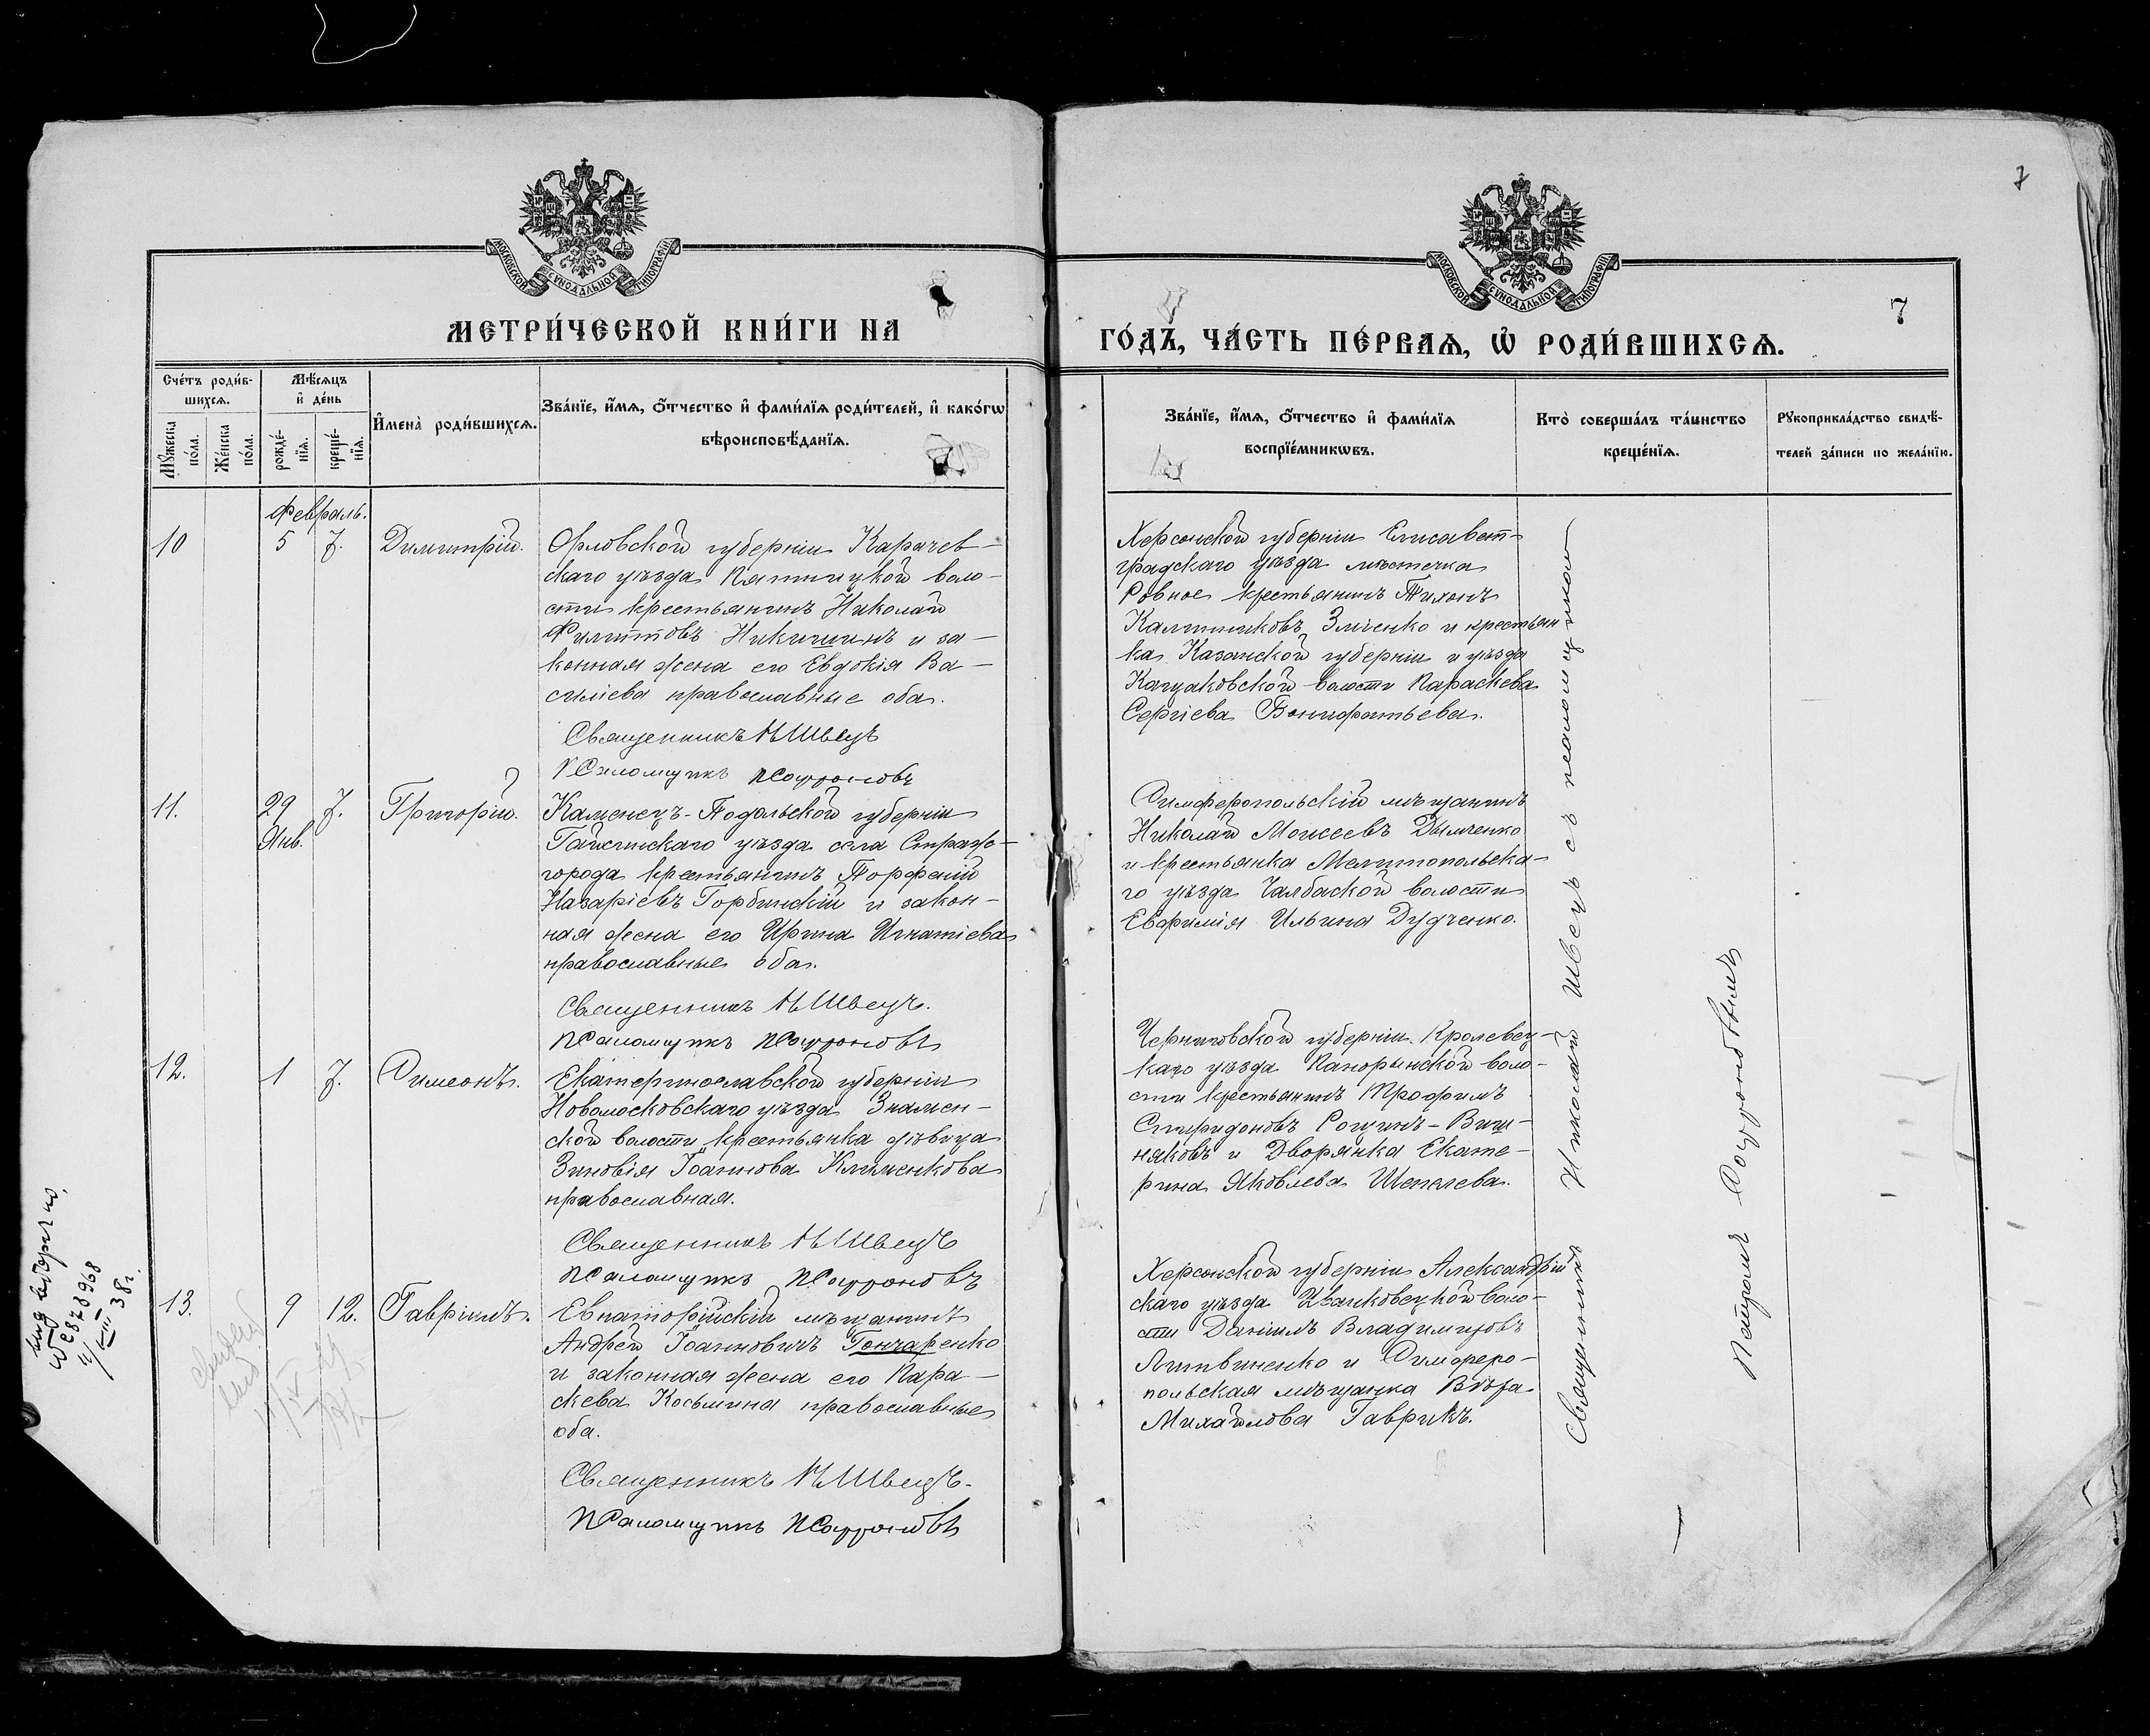 7
МОСКОВСКОЙ СѴНОДАЛЬНОЙ ТИПОГРАФІИ
МОСКОВСКОЙ СѴНОДАЛЬНОЙ ТИПОГРАФІИ
7
МЕТРИ́ЧЕСКОЙ КНИ́ГИ НА
ГО́ДЪ, ЧА́СТЬ ПЕ́РВАѦ, Ѡ҆ РОДИ́ВШИХСѦ.
Сче́тъ роди́в-
шихсѧ.
Мѣ́сѧцъ
и҆ де́нь
Мꙋ́жеска
по́ла.
Же́нска
по́ла.
рожде́-
нїѧ.
креще́-
нїѧ.
И҆мена̀ роди́вшихсѧ.
Зва́нїе, и҆́мѧ, ѻ҆́тчество и҆ фами́лїѧ роди́телей, и҆ како́гѡ
вѣроисповѣ́данїѧ.
Зва́нїе, и҆́мѧ, ѻ҆́тчество и҆ фами́лїѧ
воспрїе́мникѡвъ.
Кто̀ соверша́лъ та́инство
креще́нїѧ.
Рꙋкоприкла́дство свидѣ́-
телей за́писи по жела́нїю.
Февраль.
10
5
7.
Димитрій.
Орловской губерніи Карачев-
скаго уѣзда Пятницкой воло-
сти крестьянинъ Николай
Филипповъ Никишинъ и за-
конная жена его Евдокія Ва-
силіева православные оба.
Священникъ Н Швецъ
Псаломщикъ П Софроновъ
Херсонской губерніи Елисавет-
градскаго уѣзда мѣстечка
Ровное крестьянинъ Тихонъ
Калинниковъ Зліенко и крестьян
ка Казанской губерніи и уѣзда
волости Параскева
Сергіева Вонифатьева.
11.
29
Янв.
7.
Григорій.
Каменецъ-Подольской губерніи
Гайсинскаго уѣзда села Страж-
города крестьянинъ Порфирій
Назаріевъ Горбинскій и закон-
ная жена его Ирина Игнатіева
православные оба.
Священникъ Н Швецъ.
Псаломщикъ П Софроновъ
Симферопольскій мѣщанинъ
Николай Моисеевъ Дымченко
и крестьянка Мелитопольска-
го уѣзда Чалбаской волости
Евфимія Ильина Дудченко.
12.
1
7.
Симеонъ.
Екатеринославской губерніи
Новомосковскаго уѣзда Знамен-
ской волости крестьянка дѣвица
Зиновія Іоаннова Клименкова
православная.
Священникъ Н Швецъ
Псаломщикъ П Софроновъ
Черниговской губерніи Кролевец-
каго уѣзда воло-
сти крестьянинъ Трофимъ
Спиридоновъ Рощинъ-Виш-
няковъ и Дворянка Екате-
рина Яковлева Шепелева.
13.
9
12.
Гавріилъ.
Евпаторійскій мѣщанинъ
Андрей Іоанновичъ Гончаренко
и законная жена его Пара-
скева Косьмина православные
оба.
Священникъ Н Швецъ.
Псаломщикъ П Софроновъ
Херсонской губерніи Александрій
скаго уѣзда Иванковецкой воло-
сти Даніилъ Владимировъ
Литвиненко и Симферо-
польская мѣщанка Вѣра
Михайлова Гаврикъ.
Священникъ Николай Швецъ съ псаломщикомъ
Петромъ Софроновымъ
878968
38 г.